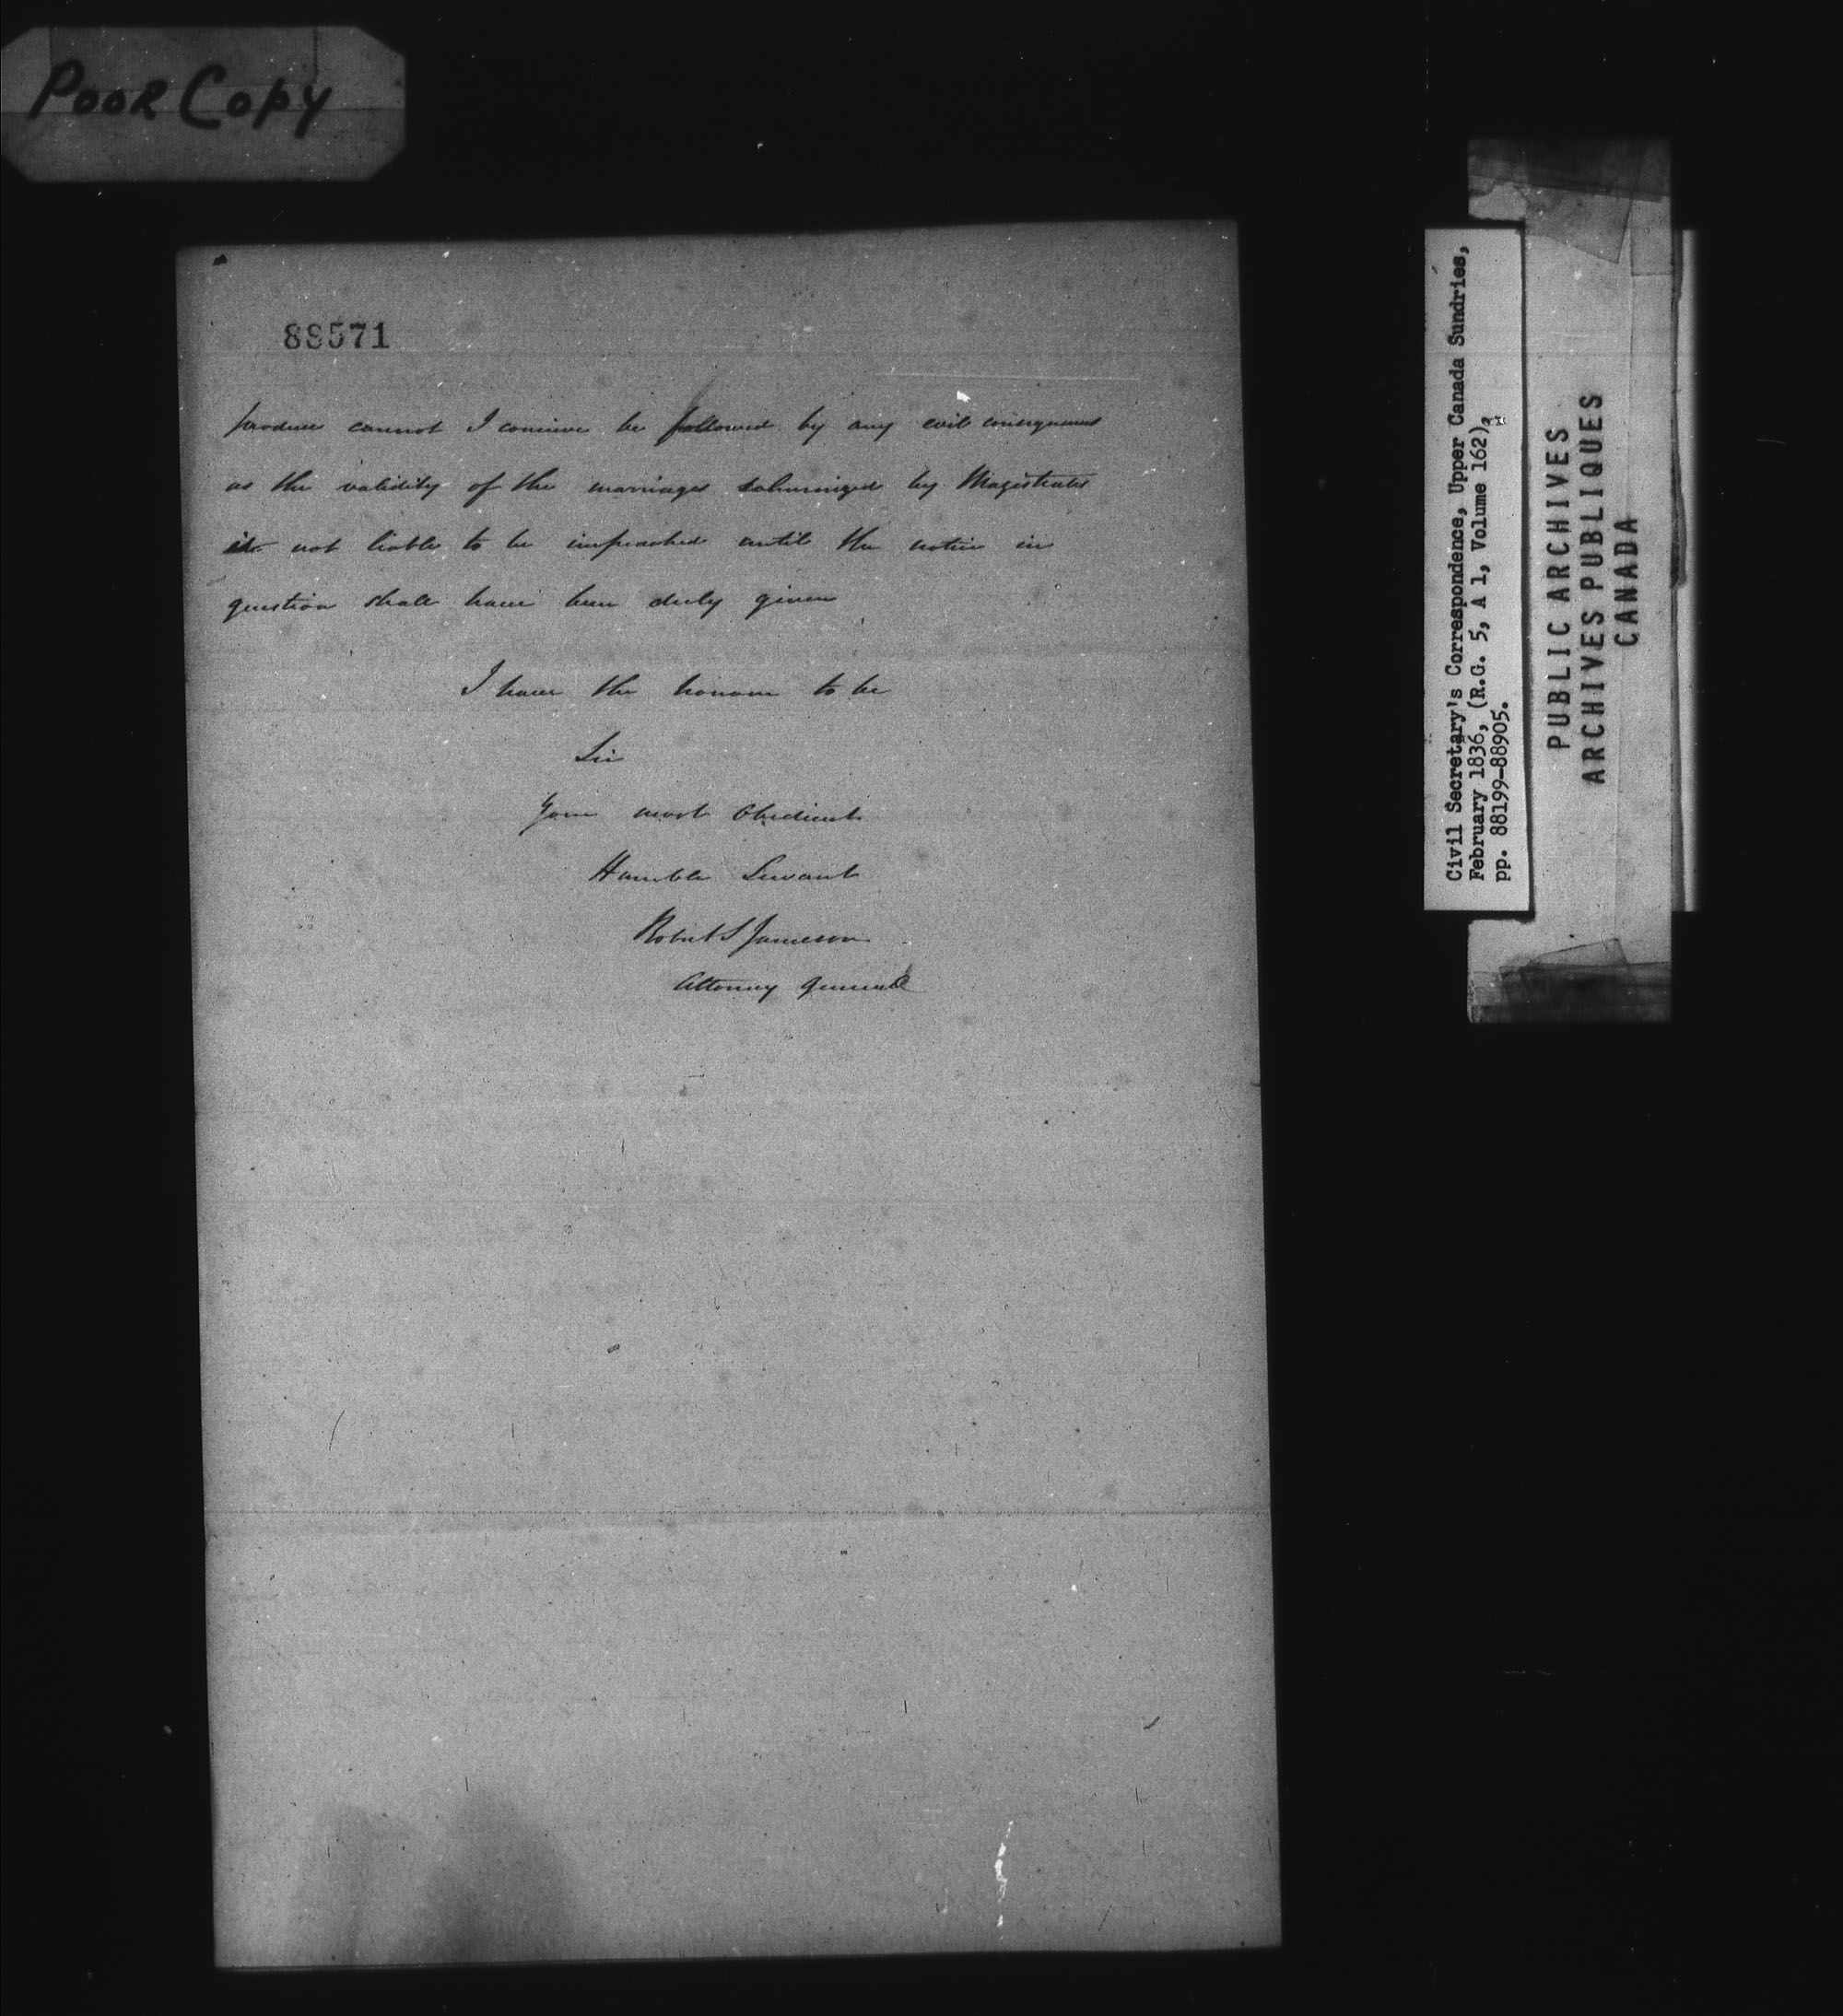 Poor Copy
88571
produce cannot I conceive be followed by any evil consequences
as the validity of the marriages solemnized by Magistrates
is not liable to be impeached until the notice in
question shall have been duly given
I have the honour to be
Sir
Your most Obedient
Humble Servant
Robert S Jameson
Attorney General
Civil Secretary's Correspondence, Upper Canada Sundries,
February 1836, (R.G. 5, A 1, Volume 162),
pp. 88199-88905.
PUBLIC ARCHIVES
ARCHIVES PUBLIQUES
CANADA